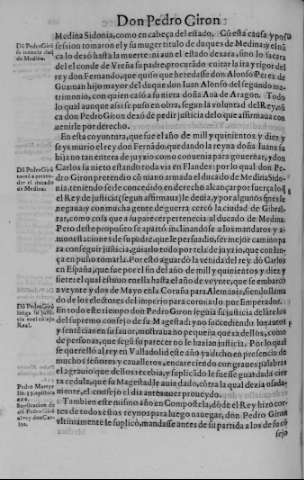 Don Pedro Giron
Medina Sidonia, como en cabeça del estado. Có esta causa y posse
Dó Pedro Giró
session tomaron el y su muger titulo de duques de Medina: y el nũ
ca lo dexó hasta la muerte: ni aun el estado dexara, sino lo sacara
del el conde de Vreña su padre procurãdo euitar la ira y rigor del
rey don Fernando, que quiso que heredasse don Alonso Perez de
Guzman hijo mayor del duque don Iuan Alonso del segundo ma-
trimonio, con quien caso a su nieta doña Ana de Aragon. Todo
lo qual aunque assi se puso en obra, segun la voluntad del Rey, nũ
ca don Pedro Giron dexó de pedir justicia de lo que affirmaua con
uenirle por derecho.
En esta coyuntura, que fue el año de mil y quinientos y diez y
seys murio el rey don Fernãdo, que dando la reyna doña Iuana su
hija no tan entera de juyzio como conuenia para gouernar, y don
Carlos su nieto estando toda via en Flandes: por lo qual don Pe-
Dó Pedro Giró
dro Giron pretendio có mano armada el ducado de Medina Sido-
nia, teniendo se le concedido en derecho alcançar por fuerça lo q̃
el Rey de justicia (segun affirmaua) le deuia, y por algunos fines lle
ga uua y con mucha gente de guerra cercó la ciudad de Gibral-
tar, como cosa que a su parecer pertenecia al ducado de Medina.
Pero deste proposito se apartó inclinandose a los mandatos y a-
monestaciones de su padre, que le persuadio, ser mejor camino pa
ra conseguir justicia, guiarlo todo por tela de juyzio, que con lan-
ça en puño tomarla. Por esto aguardó la venida del rey dó Carlos
en España, que fue por el fin del año de mill y quinientos y diez y
siete: el qual estuuo en ella hasta el año de veynte, que se embarcó
a veynte y dos de Mayo en la Coruña para Alemania, siendo llama
do de los electores del imperio para coronarlo por Emperador.
Dó Pedro Giró
En todo este tiempo don Pedro Giron seguia su justicia delante los
Real.
del supremo consejo de su Magestad: y no sucediendo los autos
y sentencias en su fauor, mostraua no pequeña quexa dellos, como
de personas, que segũ su parecer no le hazian justicia. Por lo qual
se querelló al rey en Valladolid este año ya dicho en presencia de
muchos señores y caualleros, encareciendo con graues palabras
el agrauio que dellos recebia, y suplicãdo le fuesse guardada cier
Pedro Martyr
ta cedula, que su Magestad le auia dado, cótra la qual dezia osada-
mente, el consejo el dia antes auer proueydo.
Tambien este mismo año en Compostela, dóde el Rey hizo cor-
tes de todos estos reynos para luego nauegar, don Pedro Giron
vltimamente le suplicó, mandasse antes de su partida a los de su có
sejo